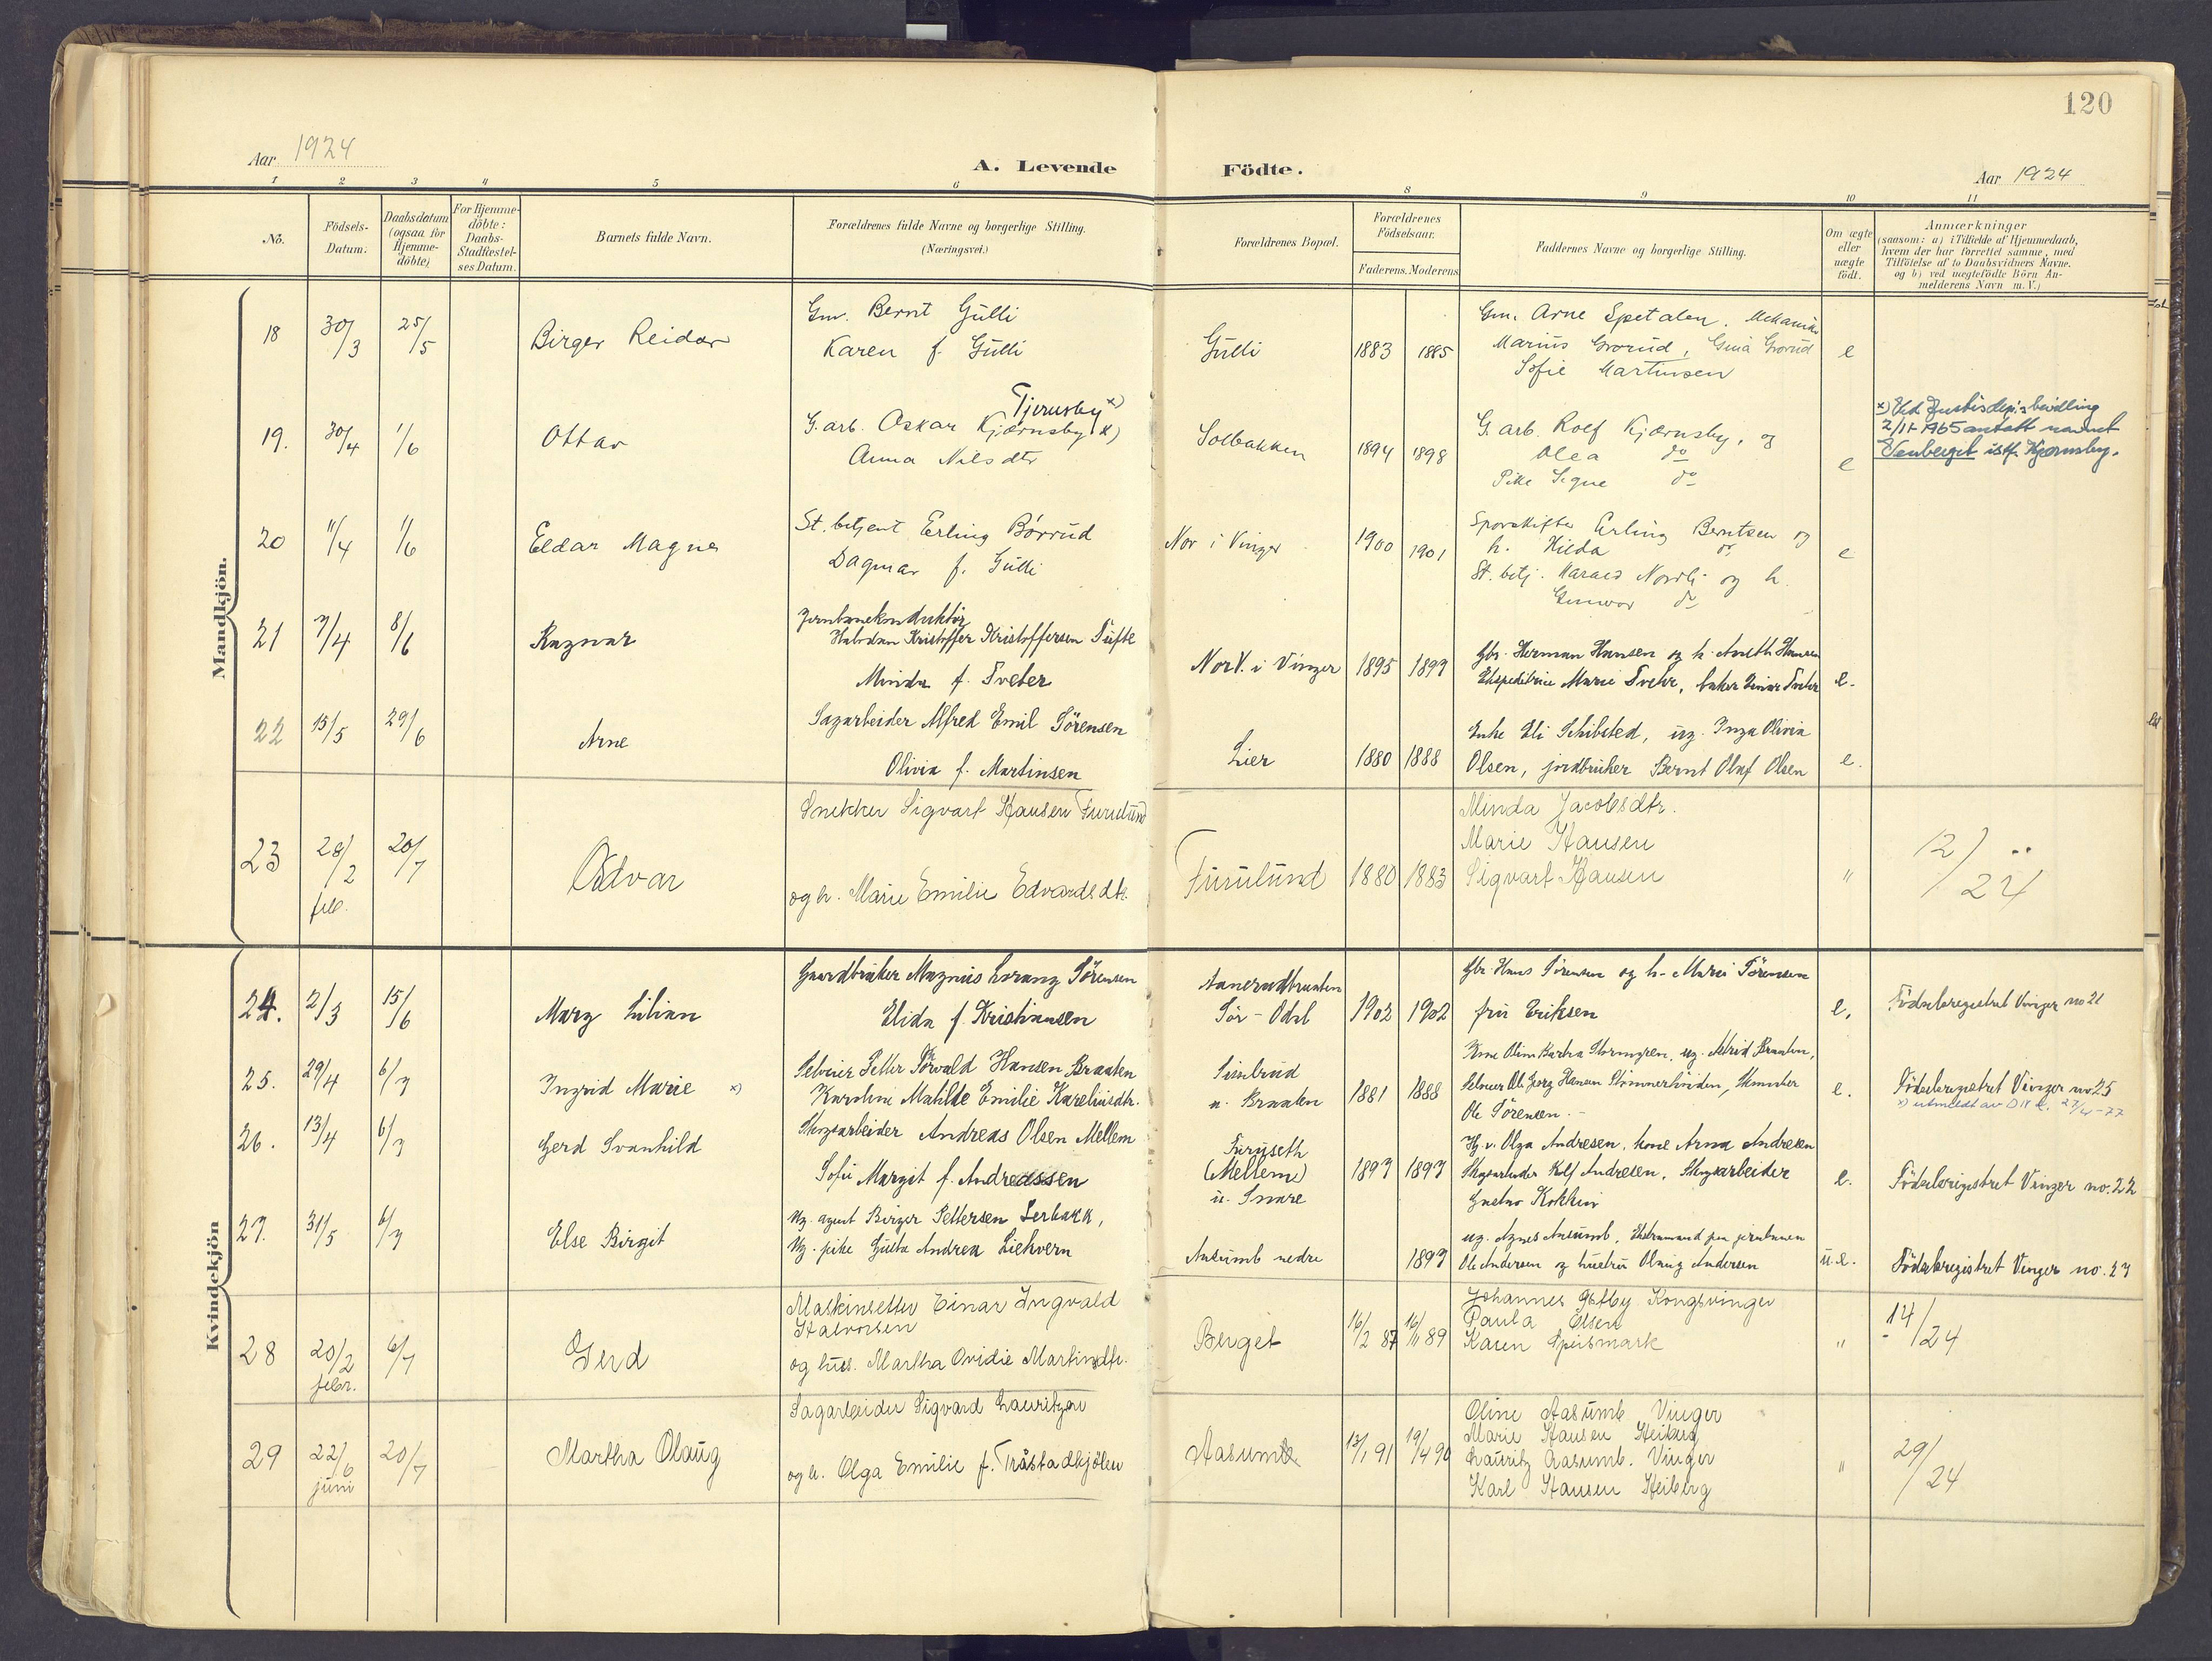 120
Aar 1924
A. Levende Födte.
Aar 1924
1 2 3 4 5 6 8 9 10 11
No.
Födsels-Datum.
Daabsdatum (ogsaa for Hjemme-döbte)
For Hjemme-döbte: Daabs-Stadfæstel-ses Datum.
Barnets fulde Navn.
Forældrenes fulde Navne og borgerlige Stilling.
(Næringsvei.)
Forældrenes Bopæl.
Forældrenes Födselsaar.
Faderens. Moderens
Faddernes Navne og borgerlige Stilling.
Om ægte eller uægte födt.
Anmærkninger
(saasom: a) i Tilfælde af Hjemmedaab,
hvem der har forrettet samme, med
Tilföielse af to Daabsvidners Navne.
og b) ved uægtefödte Börn An-
melderens Navn m. V.)
Mandkjön.
18 30/3 25/5 Birger Reidar
Gm. Bernt Gulli
Karen f. Gulli
Gulli 1883 1885
Gm. Arne Spetalen. Mekanik
Marius Grorud, Gina Grorud
Sofie Martinsen
e
19. 30/4 1/6 Ottar
Tjernsby x)
G. arb. Oskar Kjærnsby x)
Anna Nilsdtr
Solbakken 1894 1898
G. arb. Rolf Kjærnsby, og
Olea do
Pike Signe do
e
x) Ved Justisdep's bevilling
2/11 1965 antatt navnet
Venberget istf. Kjærnsby.
20 11/4 1/6 Eldar Magne
St. betjent Erling Børrud
Dagmar f. Gulli
Nor i Vinger 1900 1901
Sporskifter Erling Berntsen og
h. Hilda do
St. betj. Harald Nordli og h.
Gunvor do
e
21 7/4 8/6 Ragnar
Jernbanekonduktør
Halvdan Kristoffer Kristoffersen Tufte
Minda f. Tveter
Nor V. i Vinger 1895 1899
Gbr. Herman Hansen og h. Aneth Hansen
Ekspeditrice Marie Tveter, baker Einar Tveter
e.
22 15/5 29/6 Arne
Sagarbeider Alfred Emil Sørensen
Olivia f. Martinsen
Lier 1880 1888
Enke Eli Schibsted, ug. Inga Olivia
Olsen, jordbruker Bernt Olaf Olsen
e.
23 28/2 feb. 20/7 Odvar
Snekker Sigvart Hansen Furulund
og h. Marie Emilie Edvardsdtr.
Furulund 1880 1883
Minda Jacobsdtr.
Marie Hansen
Sigvart Hansen
"
12/24
Kvindekjön
24. 2/3 15/6 Mary Lilian
Gaardbruker Magnus Lorang Sørensen
Elida f. Kristiansen
Aanerudbraaten
Sør-Odal 1902 1902
Gbr Hans Sørensen og h. Marie Sørensen
fru Eriksen
e.
Fødselsregistret Vinger no 21
25. 29/4 6/7 Ingrid Marie x)
Selveier Petter Torvald Hansen Braaten
Karoline Matilde Emilie Kareliusdtr.
Simbrud
u. Braaten 1881 1888
Ole Sørensen.
e.
Fødselsregistret Vinger no 25
26. 13/4 6/7 Gerd Svanhild
Skogsarbeider Andreas Olsen Mellem
Sofie Margit f. Andreassen
Furuseth
(Mellem)
u. Snare 1897 1897
Hj. v. Olga Andresen, kone Arna Andresen
Skogsarbeider Rolf Andresen, Skogsarbeider
Gustav Kokkin
e.
Fødselsregistret Vinger no. 22
27. 31/5 6/7 Else Birgit
Ug. agent Birger Pettersen Lerbakk,
Ug. pike Gusta Andrea Liekvern
Aasumb nedre 1897
ug. Agnes Aasumb,
Ole Andersen og hustru Olaug Andersen
u.e.
Fødselsregistret Vinger no. 27
28 20/2 febr. 6/7 Gerd
Maskinsetter Einar Ingvald
Halvorsen
og hus. Martha Ovidie Martinsdtr.
Berget 16/2 87 16/11 89
Johannes Østby Kongsvinger
Paula Olsen
Karen Speismark
"
14/24
29 22/6 juni 20/7 Martha Olaug
Sagarbeider Sigvard Lauritzen
og h. Olga Emilie f. Tråstadkjölen
Aasumb 13/1 91 19/4 90
Oline Aasumb Vinger
Marie Hansen Heiberg
Lauritz Aasumb. Vinger
Karl Hansen Heiberg
"
29/24